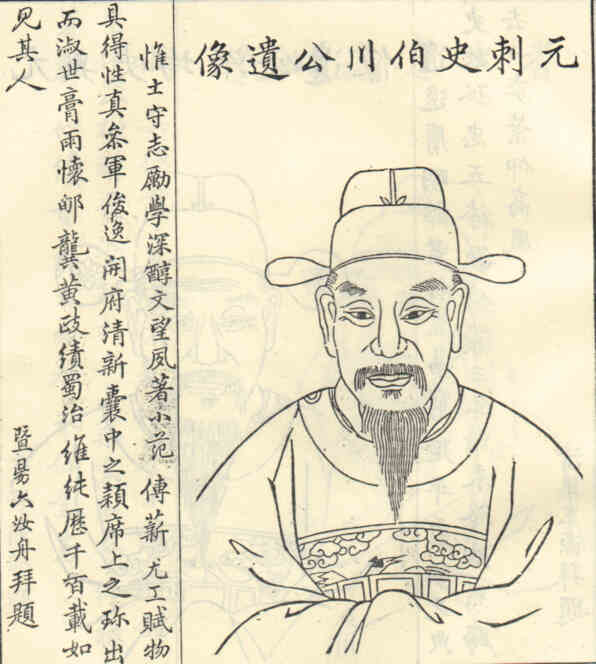 元刺史伯川公遺像
惟士守志勵學深醇文望夙著小范傳薪尤工賦物
具得性真叅軍俊逸開府清新囊中之穎席上之珎出
而淑世膏雨懷郇龔黃政績蜀治維純歷千百載如
見其人
暨昜六汝舟拜題